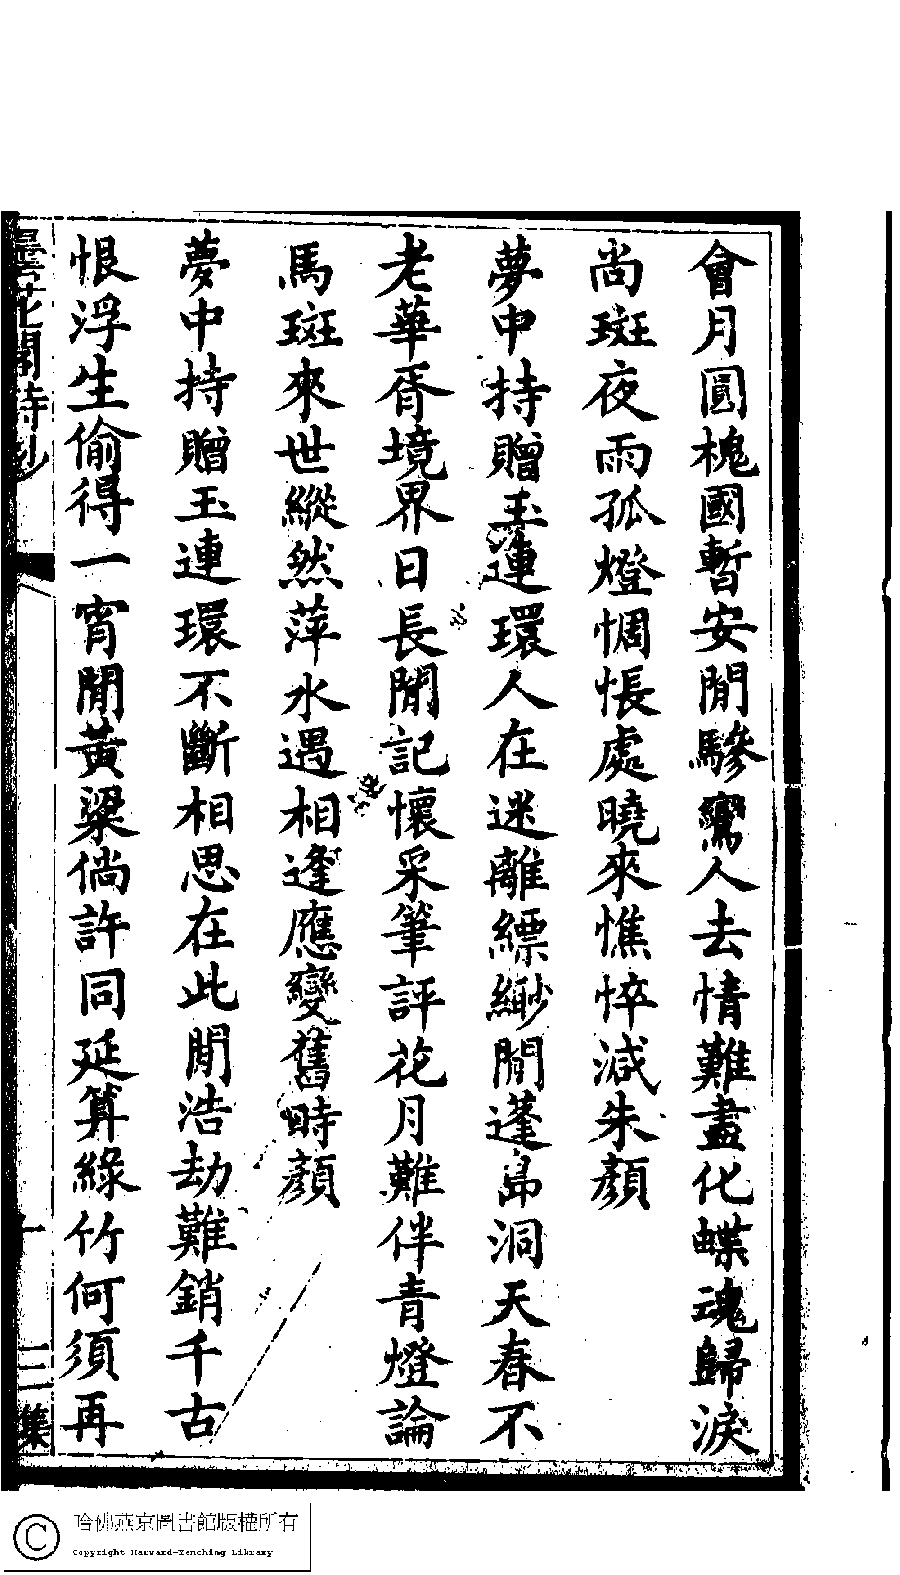 會月圓槐國暫安閒驂鸞人去情難盡化蝶魂歸淚
尚斑夜雨孤燈惆悵處曉來憔悴減朱顏
夢中持贈玉連環人在迷離縹緲閒蓬島洞天春不
老華胥境界日長閒記懷采筆評花月難伴青燈論
馬斑來世縱然萍水遇相逢應變舊時顏
夢中持贈玉連環不斷相思在此閒浩劫難銷千古
恨浮生偷得一宵閒黃粱倘許同延算綠竹何須再
曇花閣詩鈔
十
三集
哈佛燕京圖書館版權所有
Copyright Harvard-Yenching Library